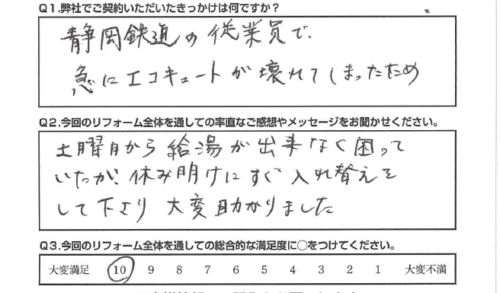 Q1.弊社でご契約いただいたきっかけは何ですか?
静岡鉄道の従業員で、
急にエコキュートが壊れてしまったため
Q2.今回のリフォーム全体を通しての率直なご感想やメッセージをお聞かせください。
土曜日から給湯が出来なく困って
いたが、休み明けにすぐ入れ替えを
して下さり 大変助かりました
Q3.今回のリフォーム全体を通しての総合的な満足度に○をつけてください。
大変満足 10 9 8 7 6 5 4 3 2 1 大変不満